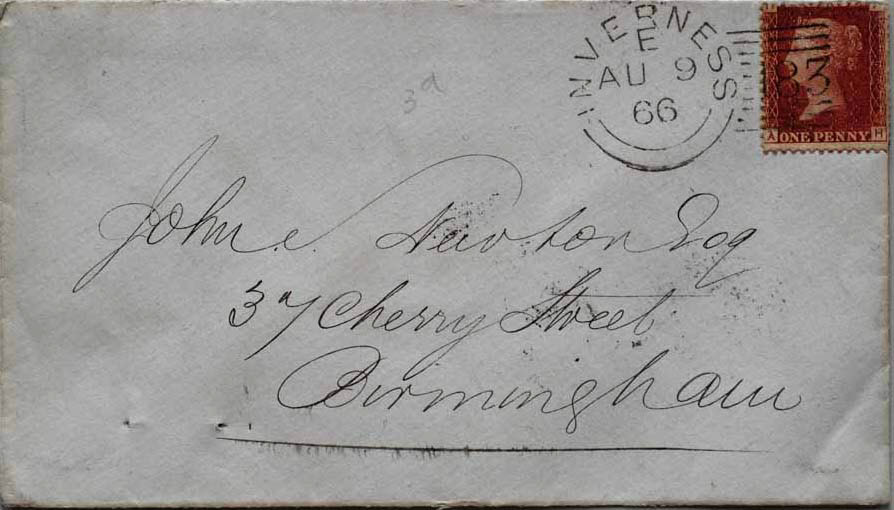 INVERNESS
E
AU 9
66
183
A ONE PENNY H
3d
John Newton Esq
37 Cherry Street
Birmingham